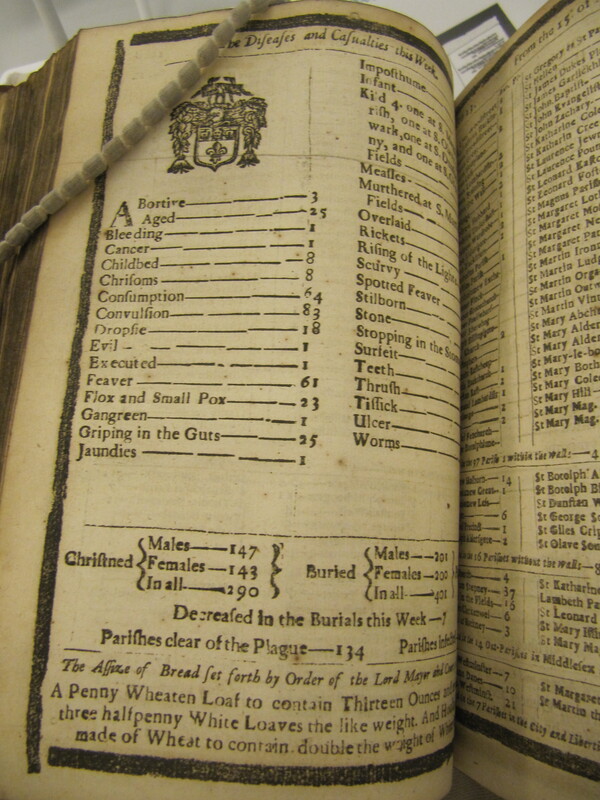 The Diseases and Casualties this Week.
Abortive 3
Aged 25
Bleeding 1
Cancer 1
Childbed 8
Chrisoms 8
Consumption 64
Convulsion 83
Dropsie 18
Evil 1
Executed 1
Feaver 61
Flox and Small Pox 23
Gangreen 1
Griping in the Guts 25
Jaundies 1
Imposthume
Infant
Kild 4. one at S.
rish, one at S.
wark, one at S.
ny, and one at S.
Fields
Measles
Murthered at S. M
Fields
Overlaid
Rickets
Rising of the Lights
Scurvy
Spotted Feaver
Stilborn
Stone
Stopping in the Stom
Surfeit
Teeth
Thrush
Tissick
Ulcer
Worms
Christned Males 147 Females 143 In all 290
Buried Males 201 Females 200 In all 401
Decreased in the Burials this Week 7
Parishes clear of the Plague 134 Parishes Infe
The Assize of Bread set forth by Order of the Lord Mayor and Cour
A Penny Wheaten Loaf to contain Thirteen Ounces and
three halfpenny White Loaves the like weight. And H
made of Wheat to contain double the weight of Whe
From the 15 of
St Katharine Cole
St Katharin Cree
St Laurence Jew
St Laurence Poun
St Leonard East
St Leonard Fost
St Magnus Parish
St Margaret Lot
St Margaret Mo
St Margaret Ne
St Margaret Pat
St Martin Iron
St Martin Ludg
St Martin Orga
St Martin Outw
St Martin Vin
St Mary Abch
St Mary Alder
St Mary Alder
St Mary-le-bo
St Mary Both
St Mary Cole
St Mary Hill
St Mary Mag.
St Mary Mag.
the 97 Parishes within the Walls
St Botolph A
St Botolph B
St Dunstan W
St George S
St Giles Crip
St Olave Sou
16 Parishes without the Walls
St Katharine
Lambeth Pa
St Leonard
St Mary Isli
St Mary Ma
Out-Parishes in Middlesex
St Margaret
St Martin th
Parishes in the City and Liberti